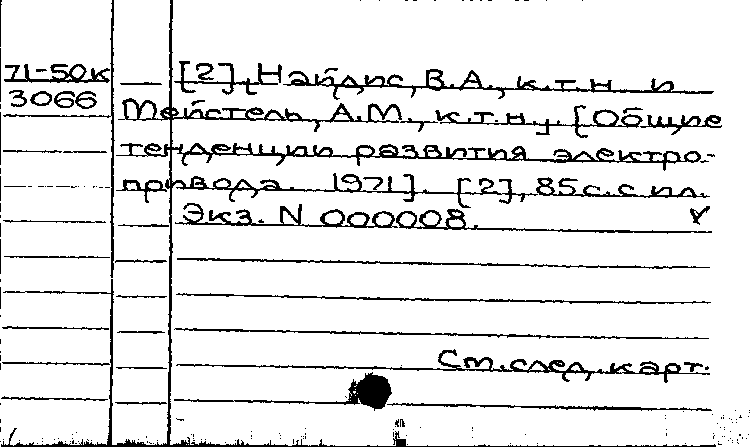 71-50к — [2], Найдис, В.А., к.т.н. и
3066 Мейстель, А.М., к.т.н., [Общие
тенденции развития электро-
привода. 1971]. [2], 85 с. с ил.
Экз. N 000008. v
См. след. карт.